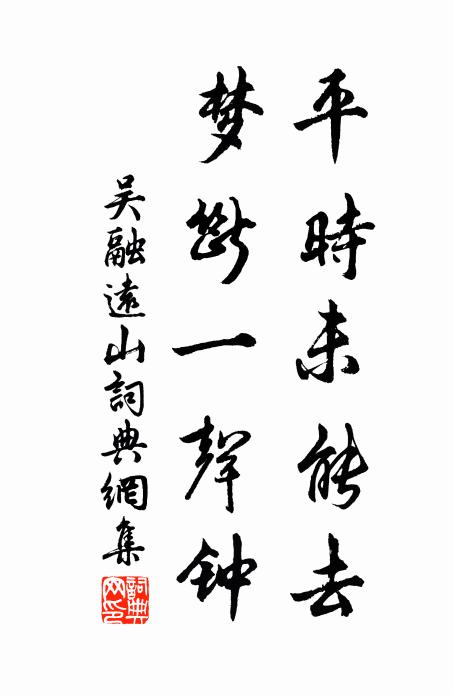 平時未能去
梦斷一聲钟
吴融遠山詞典網集
詞典网印